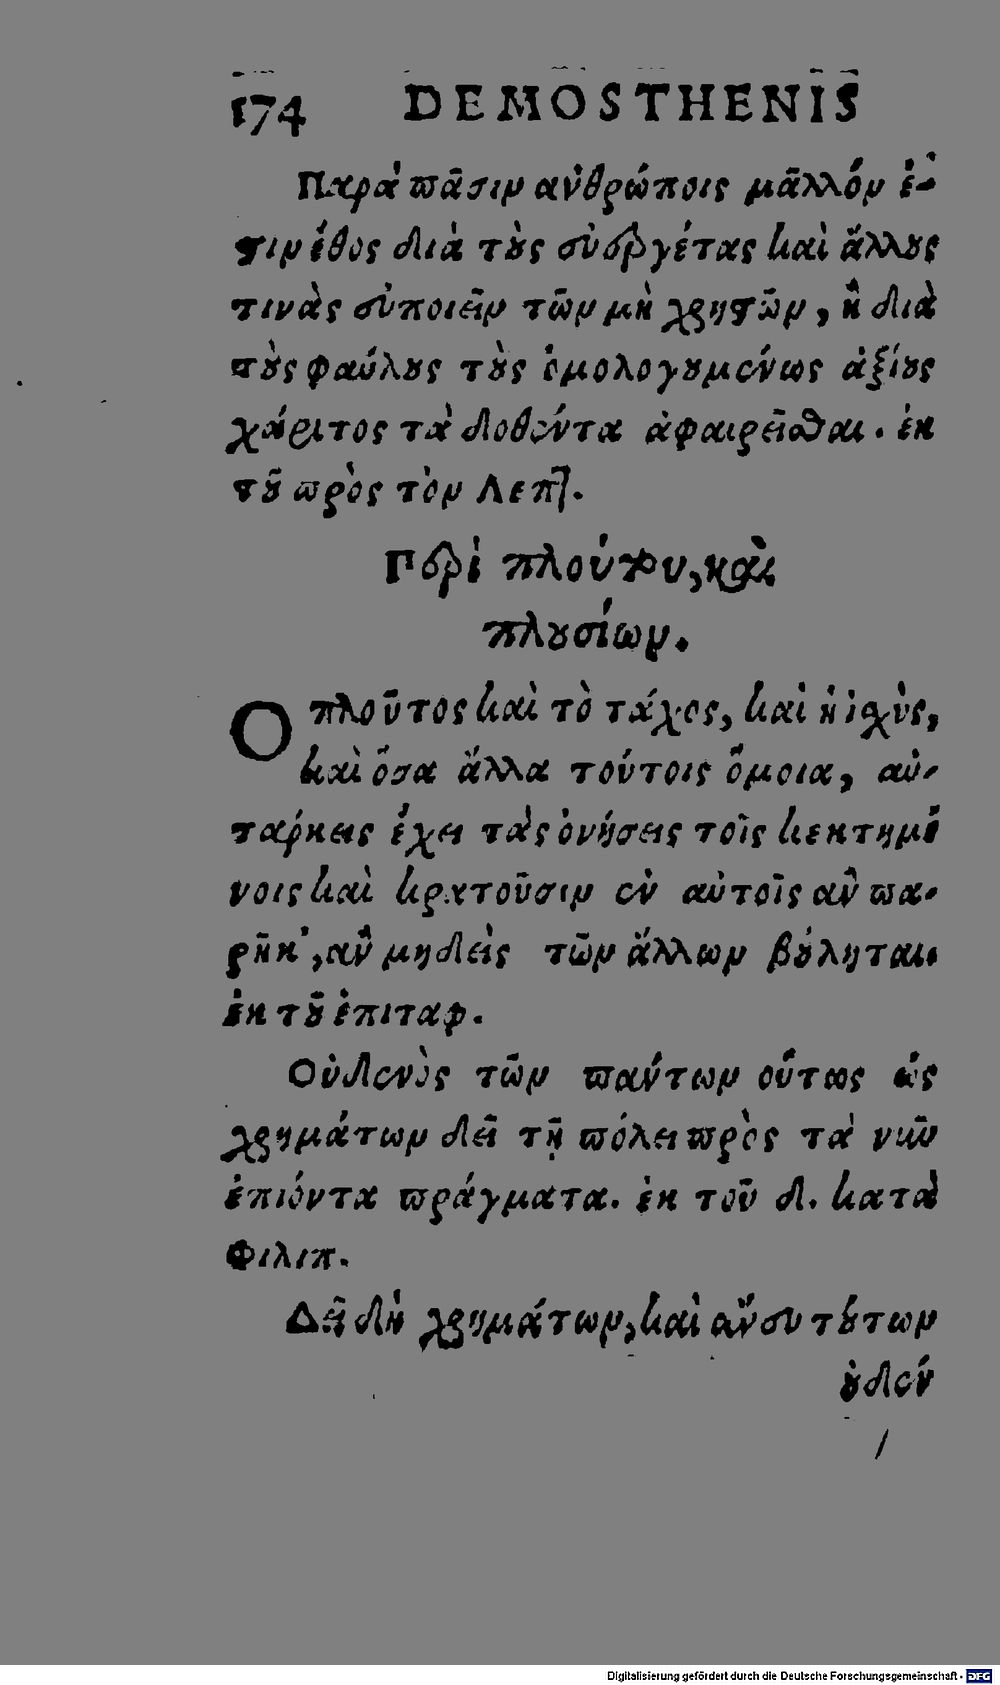 174 DEMOSTHENIS
Παρὰ πᾶσιν ἀνθρώποις μᾶλλόν ἐ-
στιν ἔθος διὰ τοὺς εὐεργέτας καὶ ἄλλους
τινὰς εὐποιεῖν τῶν μὴ χρηστῶν, ἢ διὰ
τοὺς φαύλους τοὺς ὁμολογουμένως ἀξίους
χάριτος τὰ δοθέντα ἀφαιρεῖσθαι. ἐκ
τοῦ πρὸς τὸν Λεπτ.
Περὶ πλούτου, καὶ
πλουσίων.
Ο πλοῦτος καὶ τὸ τάχος, καὶ ἡ ἰσχὺς,
καὶ ὅσα ἄλλα τούτοις ὅμοια, αὐ-
ταρκεις ἔχει τὰς ὀνήσεις τοῖς κεκτημέ
νοις καὶ κρατοῦσιν ἐν αὐτοῖς ἂν πα-
ρῇ κ', ἂν μηδεὶς τῶν ἄλλων βούληται.
ἐκ τοῦ ἐπιταφ.
Οὐδενὸς τῶν πάντων οὕτως ὡς
χρημάτων δεῖ τῇ πόλει πρὸς τὰ νῦν
ἐπιόντα πράγματα. ἐκ τοῦ δ. κατὰ
Φιλιπ.
Δεῖ δὴ χρημάτων, καὶ ἄνευ τούτων
οὐδέν